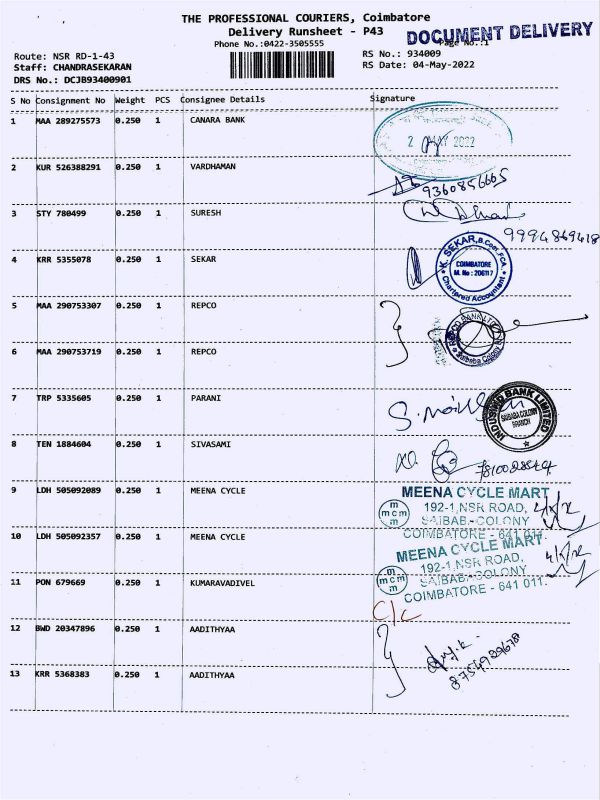 THE PROFESSIONAL COURIERS, Coimbatore
Delivery Runsheet - P43
DOCUMENT DELIVERY
Phone No.:0422-3505555
Page No.:1
Route: NSR RD-1-43
RS No.: 934009
Staff: CHANDRASEKARAN
RS Date: 04-May-2022
DRS No.: DCJB93400901
S No Consignment No Weight PCS Consignee Details Signature
1 MAA 289275573 0.250 1 CANARA BANK
2 MAY 2022
2 KUR 526388291 0.250 1 VARDHAMAN
9360856665
3 STY 780499 0.250 1 SURESH
4 KRR 5355078 0.250 1 SEKAR
K. SEKAR, B.Com, FCA
COIMBATORE
M. No : 206117
Chartered Accountant
5 MAA 290753307 0.250 1 REPCO
6 MAA 290753719 0.250 1 REPCO
Saibaba Colony
7 TRP 5335605 0.250 1 PARANI
INDUSIND BANK LIMITED
SAIBABA COLONY
BRANCH
8 TEN 1884604 0.250 1 SIVASAMI
9 LDH 505092089 0.250 1 MEENA CYCLE
MEENA CYCLE MART
mcm
m
192-1, NSR ROAD,
SAIBAB.-COLONY
COIMBATORE - 641 011.
10 LDH 505092357 0.250 1 MEENA CYCLE
MEENA CYCLE MART
mcm
m
192-1, NSR ROAD,
SAIBAB.-COLONY
COIMBATORE - 641 011.
11 PON 679669 0.250 1 KUMARAVADIVEL
C/C
12 BWD 20347896 0.250 1 AADITHYAA
13 KRR 5368383 0.250 1 AADITHYAA